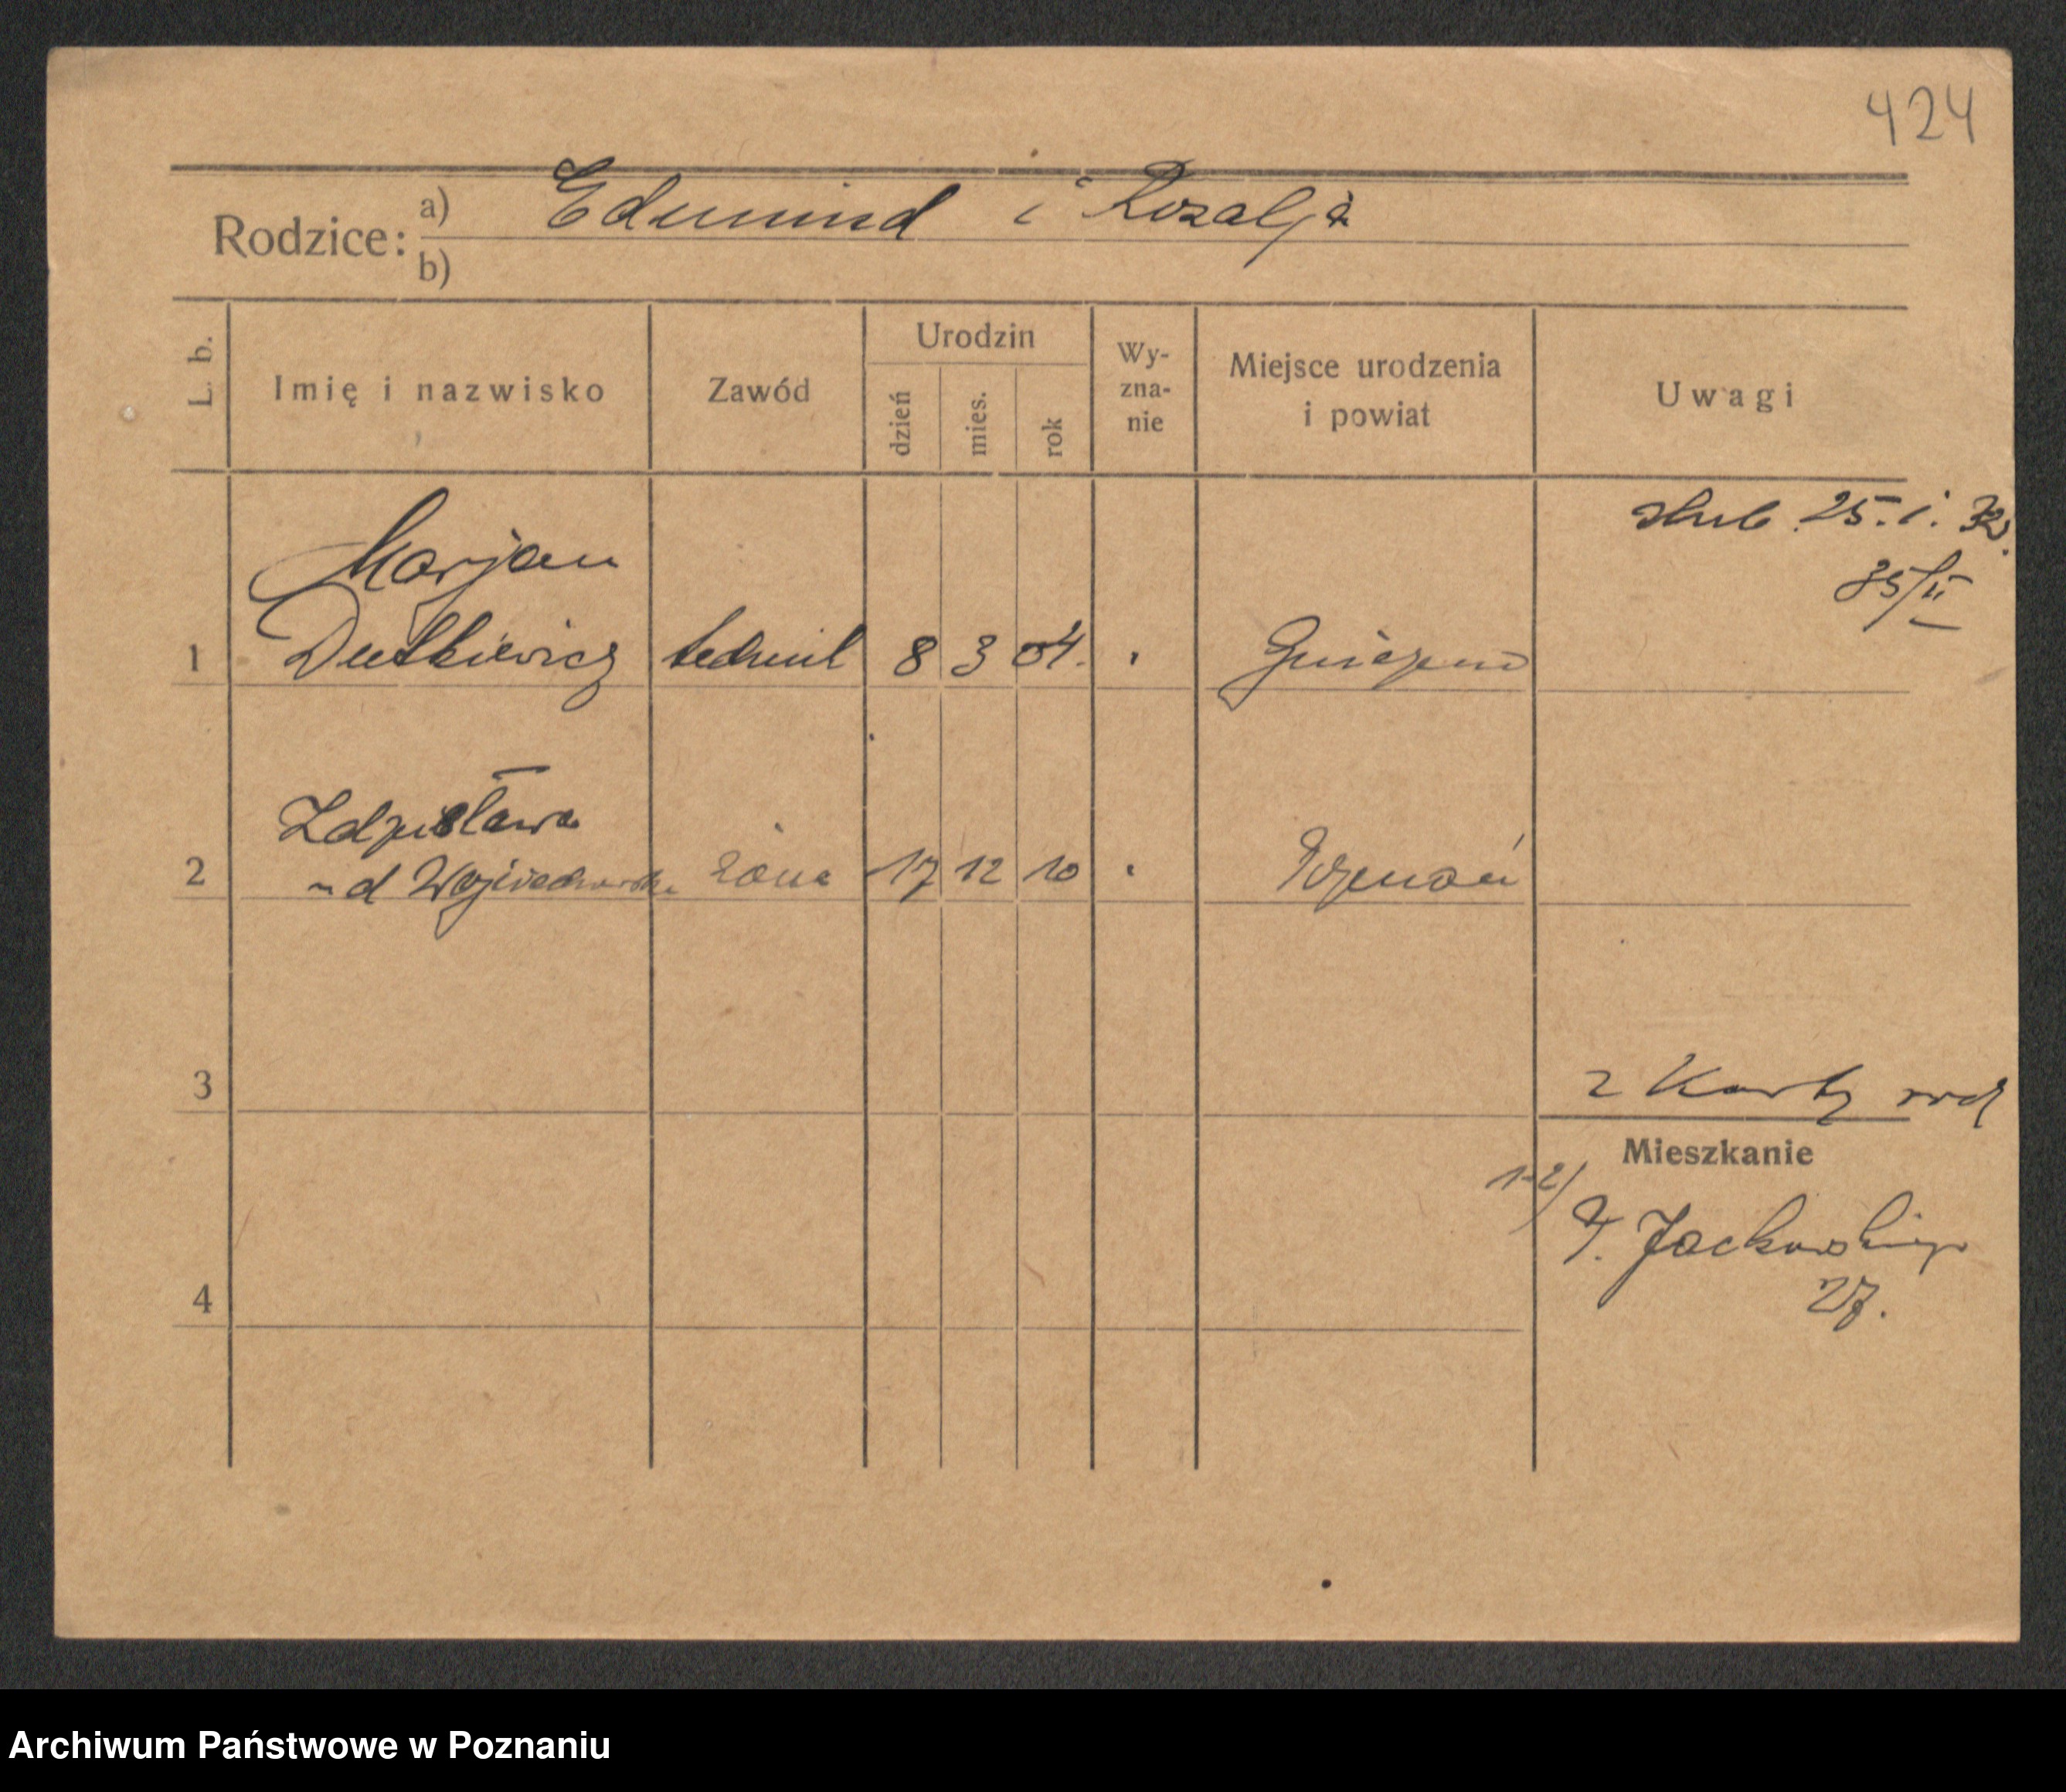 424
Rodzice: a) Edmund i Rozalja
b)
L. b. Imię i nazwisko Zawód Urodzin dzień mies. rok Wy-zna-nie Miejsce urodzenia i powiat Uwagi
ślub 25. I. 32.
35/II
Marjan
1 Dutkiewicz technik 8 3 04. " Gniezno
Zdzisława
2 z d Wojciechowska żona 17 12 10 " Poznań
3 z Karty rod
Mieszkanie
1-2/ P. Jackowskiego
27.
4
Archiwum Państwowe w Poznaniu